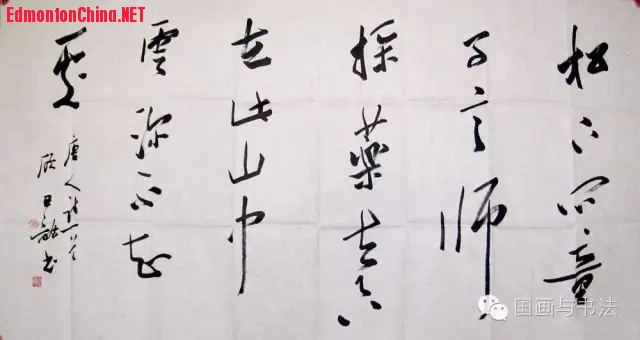 EdmontonChina.NET
松下问童
子言师
採藥去只
在此山中
雲深不知
處
唐人诗一首
书
国画与书法